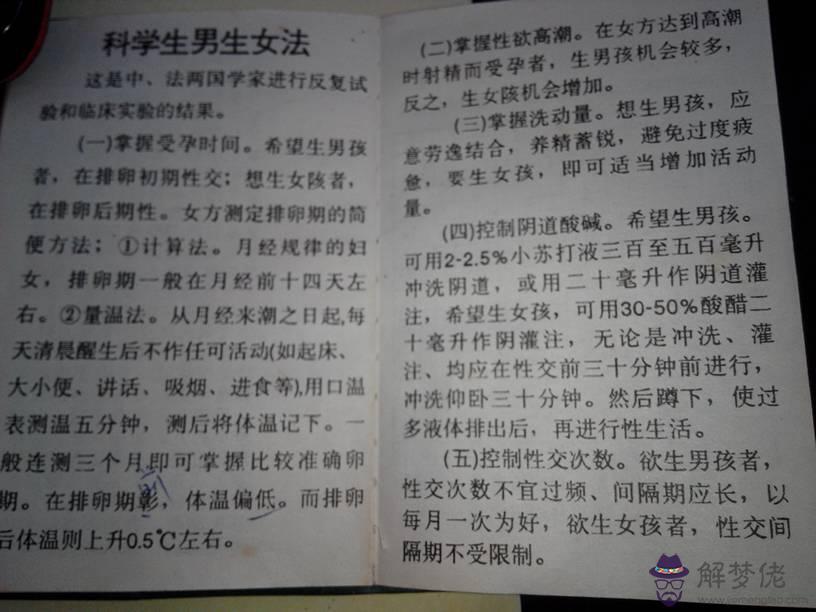 科学生男生女法
这是中、法两国学家进行反复试
验和临床实验的结果。
(一)掌握受孕时间。希望生男孩
者，在排卵初期性交；想生女陔者，
在排卵后期性。女方测定排卵期的简
便方法；①计算法。月经规律的妇
女，排卵期一般在月经前十四天左
右。②量温法。从月经来潮之日起,每
天清晨醒生后不作任可活动(如起床、
大小便、讲话、吸烟、进食等),用口温
表测温五分钟，测后将体温记下。一
般连测三个月即可掌握比较准确卵
期。在排卵期彰，体温偏低。而排卵
前
后体温则上升0.5℃左右。
(二)掌握性欲高潮。在女方达到高潮
时射精而受孕者，生男孩机会较多，
反之，生女陔机会增加。
(三)掌握洗动量。想生男孩，应
意劳逸结合，养精蓄锐，避免过度疲
惫，要生女孩，即可适当增加活动
量。
(四)控制阴道酸碱。希望生男孩。
可用2-2.5%小苏打液三百至五百毫升
冲洗阴道，或用二十毫升作阴道灌
注，希望生女孩，可用30-50%酸醋二
十毫升作阴灌注，无论是冲洗、灌
注、均应在性交前三十分钟前进行，
冲洗仰卧三十分钟。然后蹲下，使过
多液体排出后，再进行性生活。
(五)控制性交次数。欲生男孩者，
性交次数不宜过频、间隔期应长，以
每月一次为好，欲生女孩者，性交间
隔期不受限制。
解梦佬